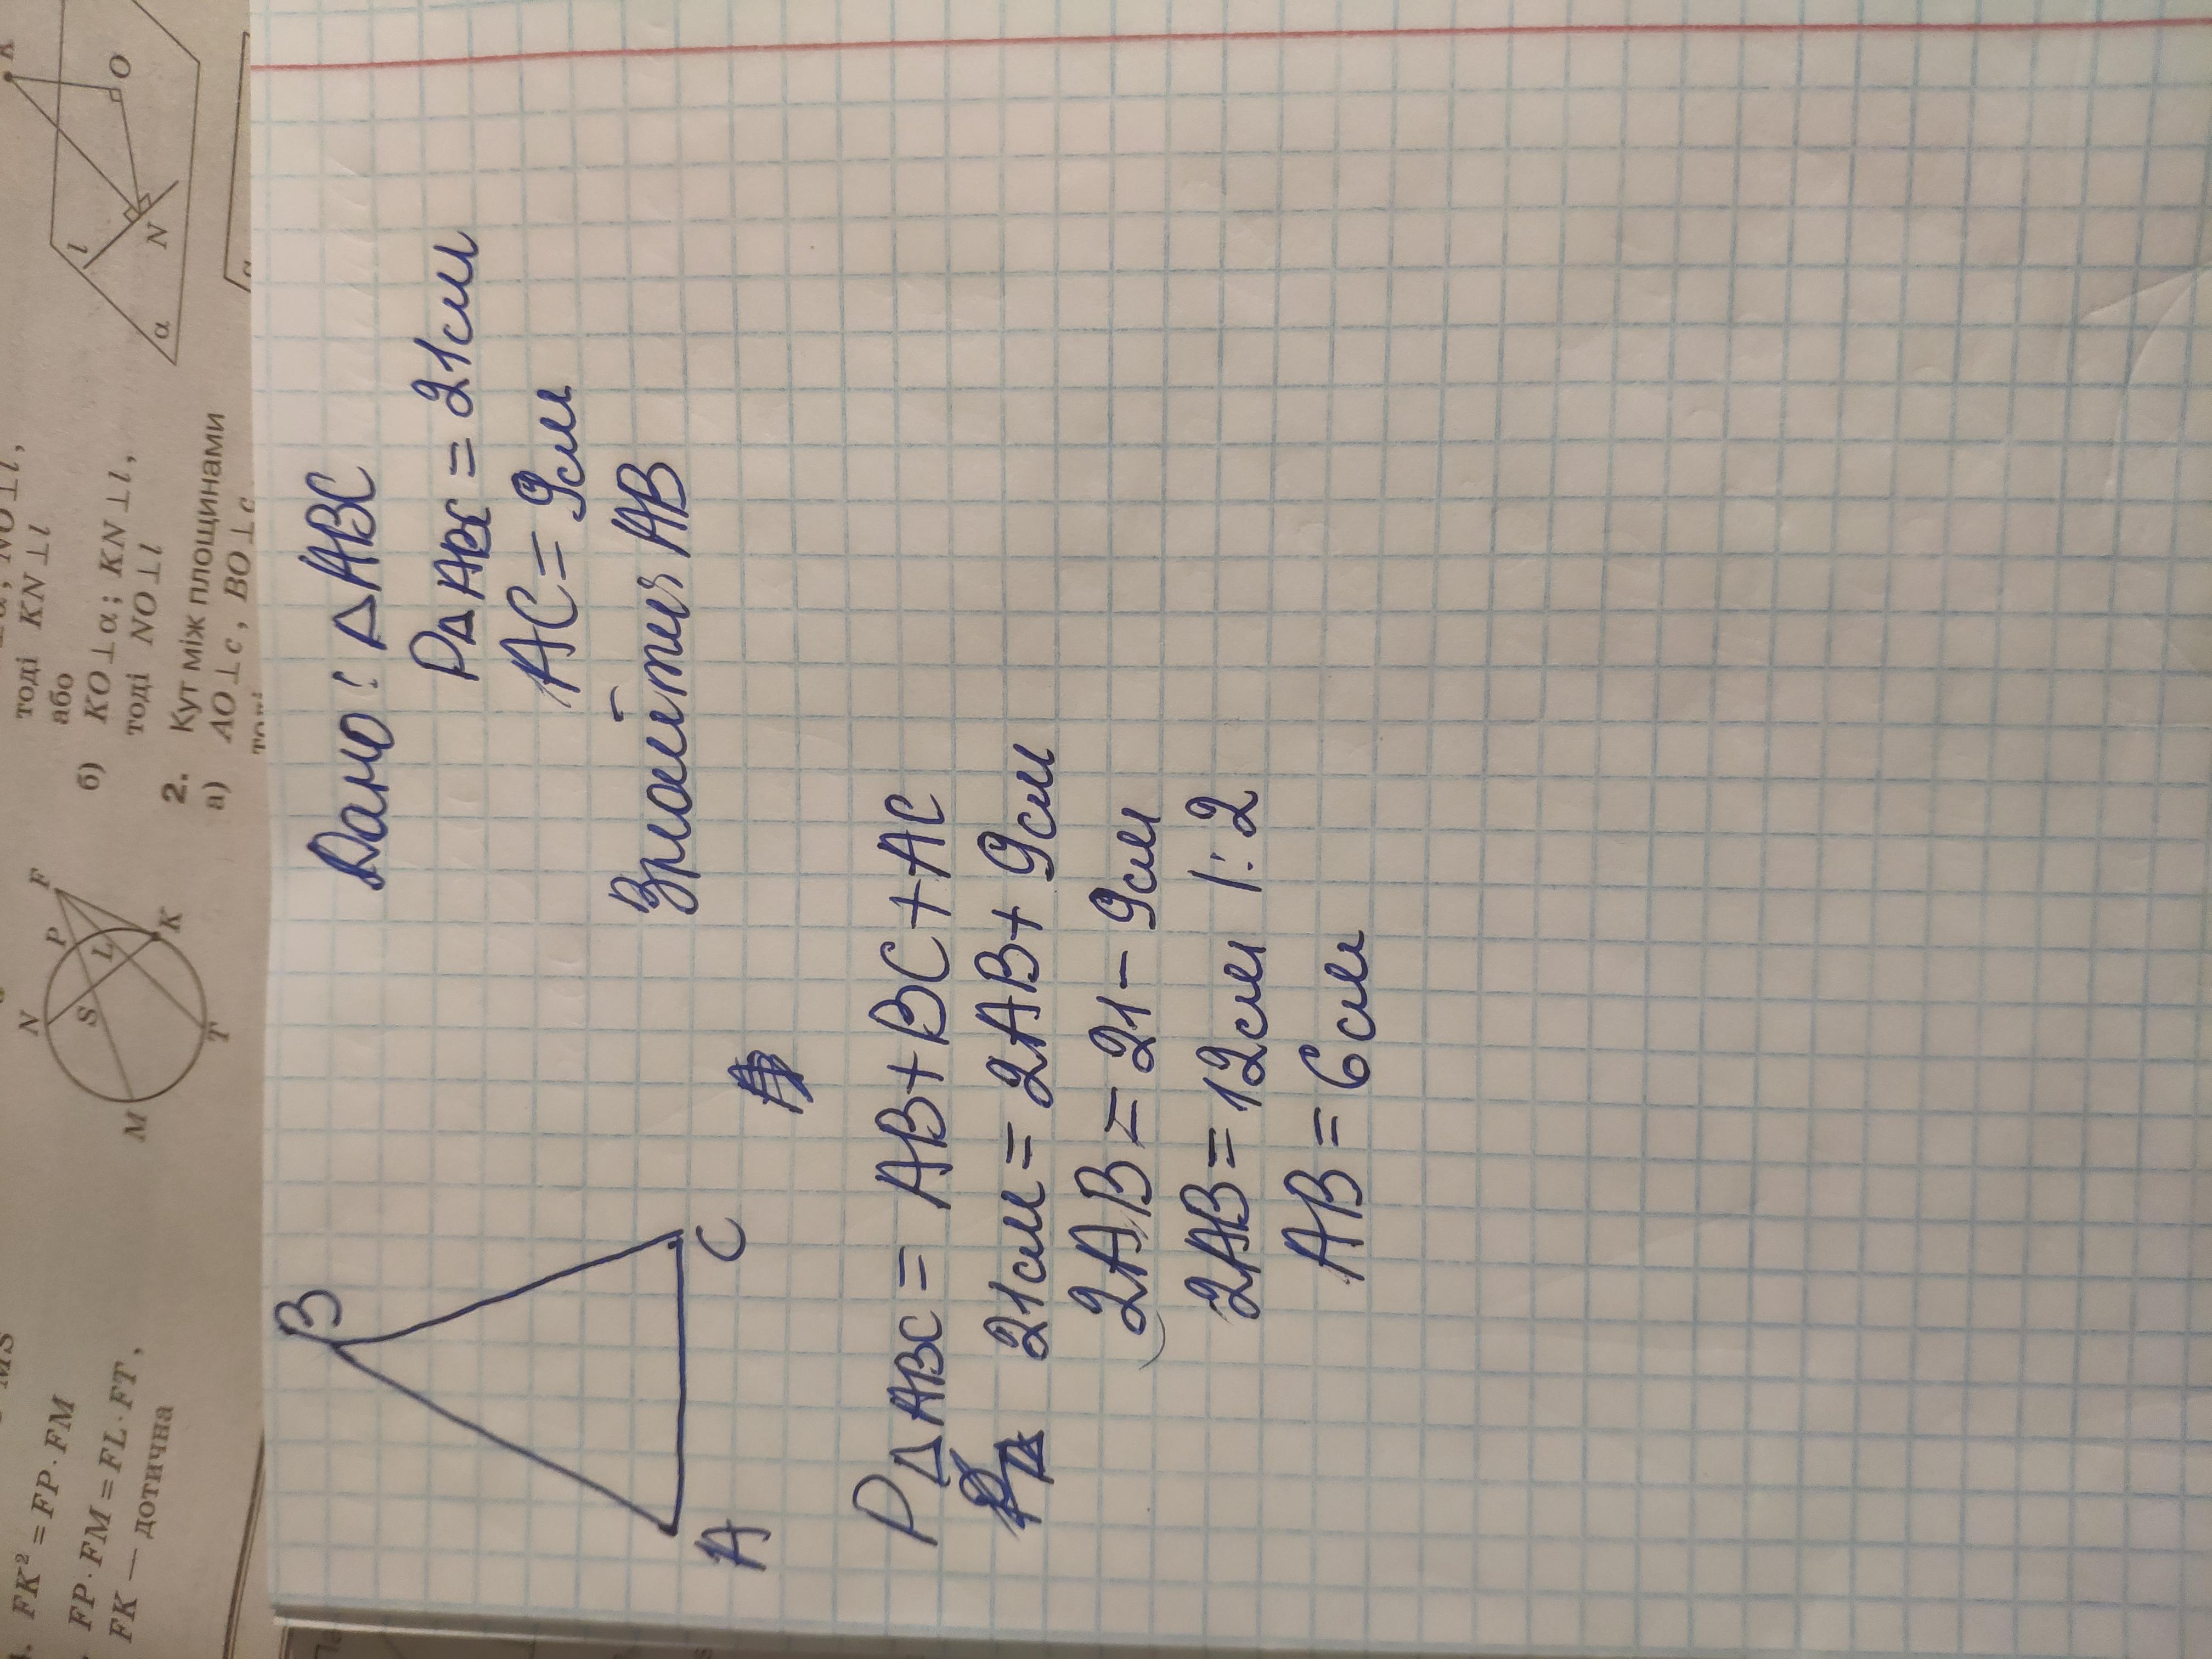 MS
FK² = FP·FM
FP·FM = FL·FT,
FK — дотична
N
P
F
S
L
K
M
T
тоді KN⊥l
або
б) KO⊥α; KN⊥l,
тоді NO⊥l
2. Кут між площинами
а) AO⊥c, BO⊥c
K
O
l
N
α
B
A
C
Дано: ΔABC
PΔABC = 21см
AC = 9см
Знайти AB
PΔABC = AB + BC + AC
21см = 2AB + 9см
2AB = 21 - 9см
2AB = 12см |:2
AB = 6см